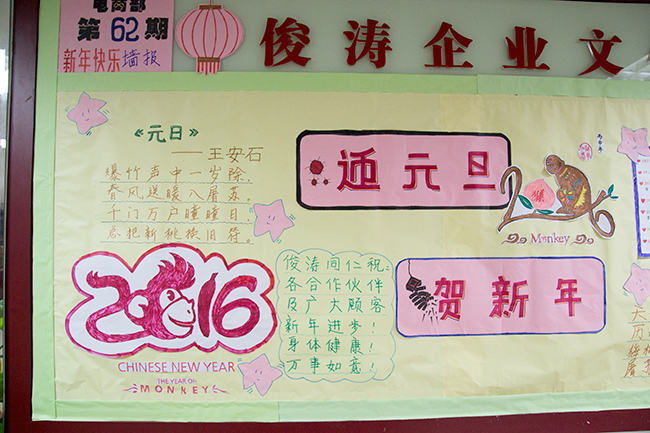 电商部
第62期
新年快乐墙报
俊涛企业文
《元日》
——王安石
爆竹声中一岁除,
春风送暖入屠苏。
千门万户曈曈日,
总把新桃换旧符。
迎元旦
Monkey
2016
CHINESE NEW YEAR
THE YEAR OF
MONKEY
俊涛同仁祝:
各合作伙伴
及广大顾客
新年进步!
身体健康!
万事如意!
贺新年